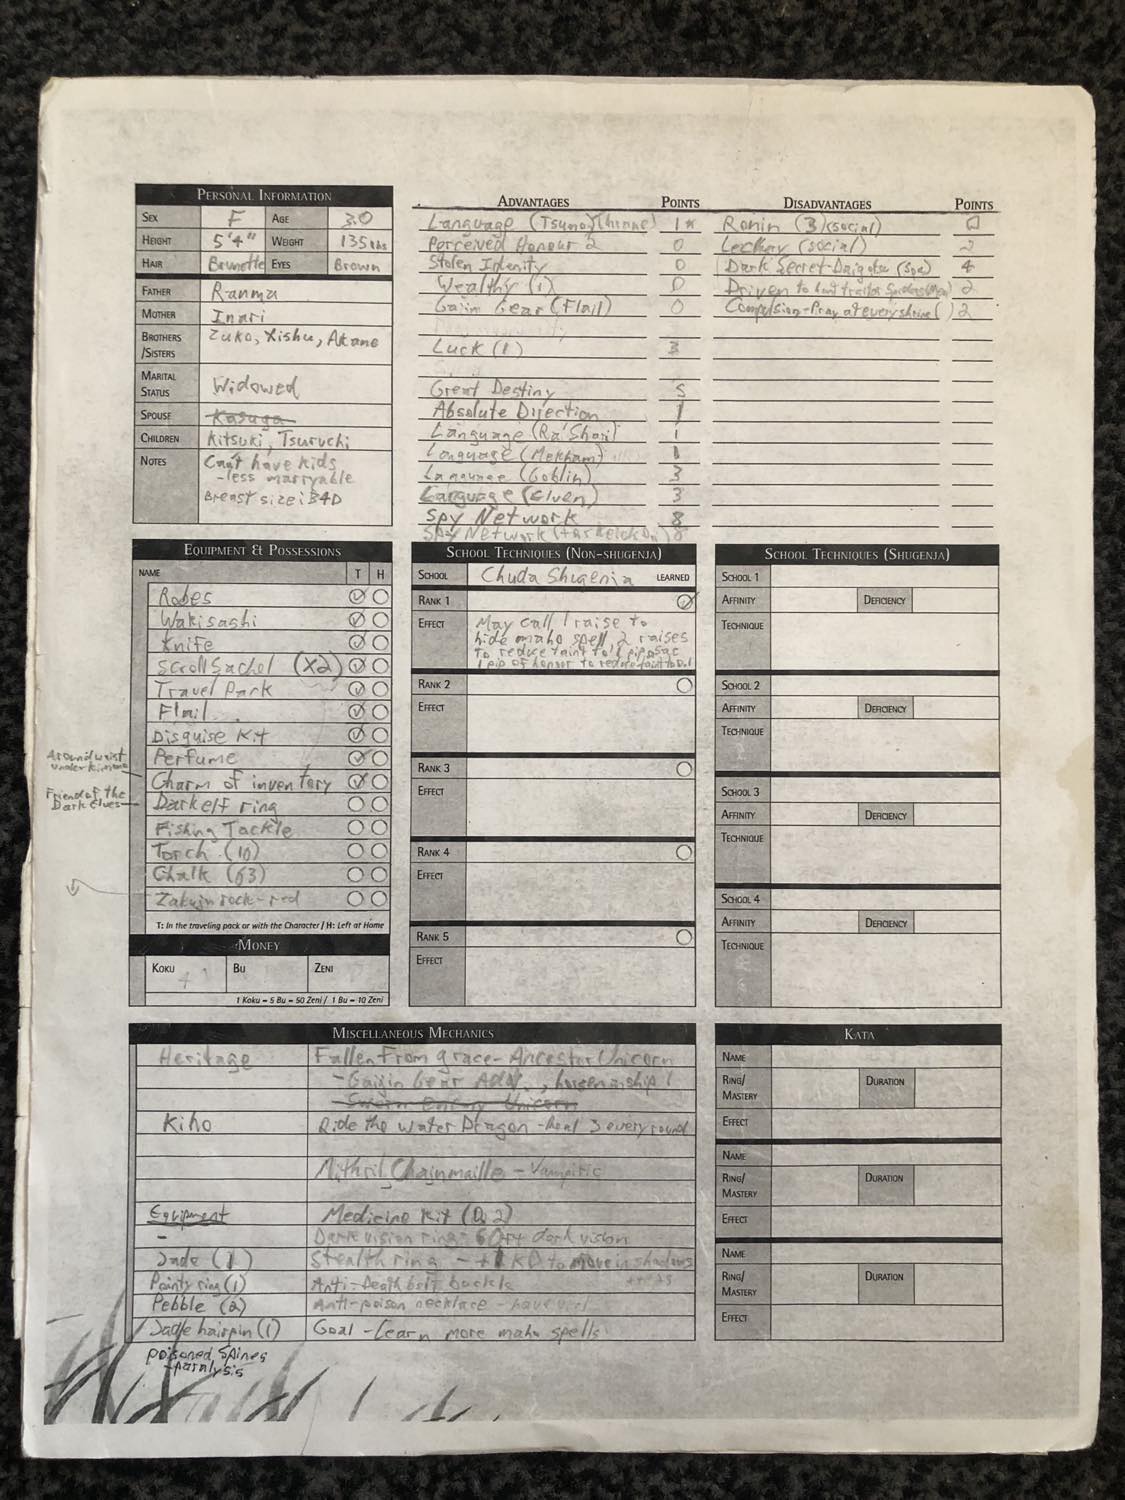 PERSONAL INFORMATION
SEX F AGE 30
HEIGHT 5'4" WEIGHT 135 lbs
HAIR Brunette EYES Brown
FATHER Ranma
MOTHER Inari
BROTHERS /SISTERS Zuko, Xishu, Akane
MARITAL STATUS Widowed
SPOUSE Kasuga
CHILDREN Kitsuki, Tsuruchi
NOTES Can't have kids
-less marryable
Breast size: 34D
ADVANTAGES POINTS DISADVANTAGES POINTS
Language (Tsuno) 1* Ronin (3)(social)
Perceived Honour 2 0 Lecher (social) 2
Stolen Identity 0 Dark Secret-Daigotsu 4
Wealthy (1) 0 Driven to hunt traitor Spiders 2
Gaijin Gear (Flail) 0 Compulsion-Pray at every shrine 2
Luck (1) 3
Great Destiny 5
Absolute Direction 1
Language (Ra'Shari) 1
Language (Mekham) 1
Language (Goblin) 3
Language (Elven) 3
Spy Network 8
Spy Network 8
EQUIPMENT & POSSESSIONS
NAME T H
Robes
Wakisashi
Knife
Scroll Sachel (x2)
Travel Pack
Flail
Disguise Kit
Perfume
Around waist under kimono
Charm of inventory
Friend of the Dark Elves
Dark elf ring
Fishing Tackle
Torch (10)
Chalk (63)
Zakujin rock-red
T: In the traveling pack or with the Character / H: Left at Home
MONEY
KOKU 4 BU ZENI
1 Koku = 5 Bu = 50 Zeni / 1 Bu = 10 Zeni
SCHOOL TECHNIQUES (NON-SHUGENJA)
SCHOOL Chuda Shugenja LEARNED
RANK 1
EFFECT May call 1 raise to
hide maho spell 2 raises
to reduce taint to 1 pip, sac
1 pip of honor to reduce taint to 0.1
RANK 2
EFFECT
RANK 3
EFFECT
RANK 4
EFFECT
RANK 5
EFFECT
SCHOOL TECHNIQUES (SHUGENJA)
SCHOOL 1
AFFINITY DEFICIENCY
TECHNIQUE
SCHOOL 2
AFFINITY DEFICIENCY
TECHNIQUE
SCHOOL 3
AFFINITY DEFICIENCY
TECHNIQUE
SCHOOL 4
AFFINITY DEFICIENCY
TECHNIQUE
MISCELLANEOUS MECHANICS
Heritage Fallen From grace-Ancestor Unicorn
-Gaijin Gear Adv., horsemanship 1
-Sworn Enemy Unicorn
Kiho Ride the Water Dragon -heal 3 every round
Mithril Chainmaille - Vampiric
Equipment Medicine Kit (Q2)
- Dark vision ring - 60ft dark vision
Jade (1) Stealth ring - +1K0 to move in shadows
Pointy ring (1) Anti-Death belt buckle
Pebble (2) Anti-poison necklace
Jade hairpin (1) Goal - Learn more maho spells
poisoned Spines
-paralysis
KATA
NAME
RING/ MASTERY DURATION
EFFECT
NAME
RING/ MASTERY DURATION
EFFECT
NAME
RING/ MASTERY DURATION
EFFECT